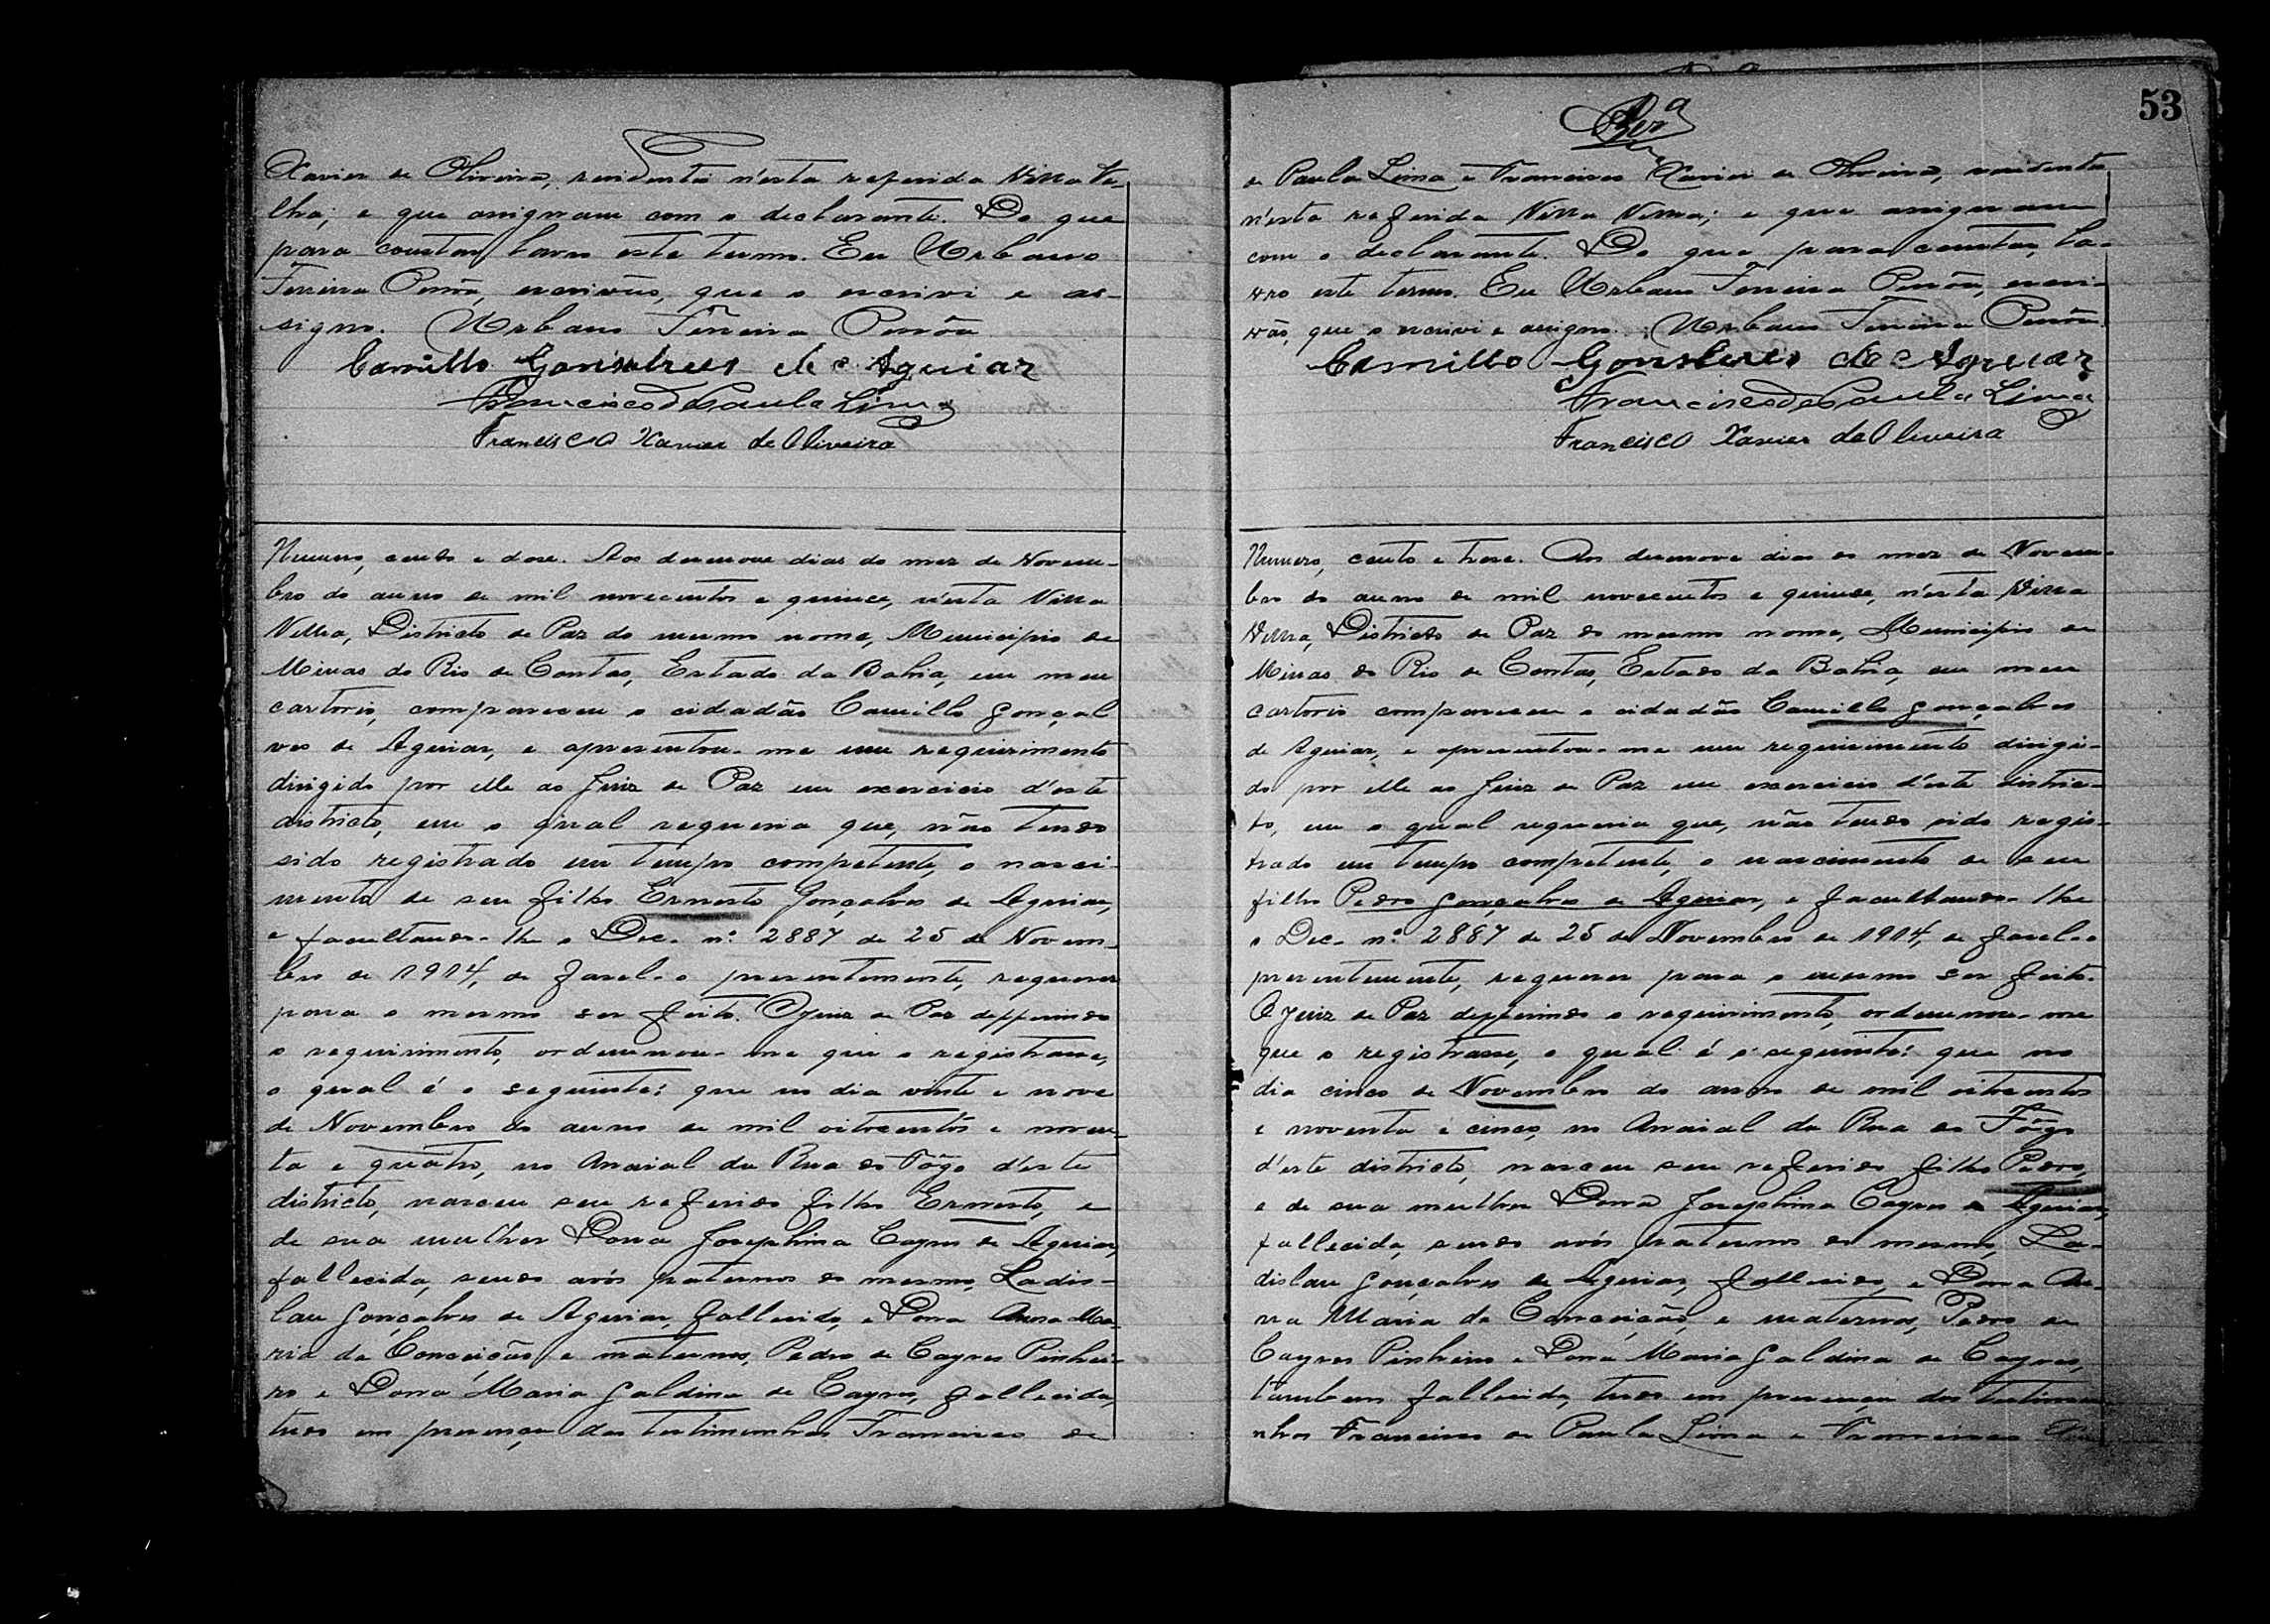 Xavier de Oliveira, residentes n'esta referida Villa Ve-
lha; e que assignam com o declarante. Do que
para constar lavro este termo. Eu Urbano
Ferreira escrivão, que o escrivi e as-
signo. Urbano Ferreira
Camillo Gonsalves de Aguiar
Francisco de Paula Lima
Francisco Xavier de Oliveira
Numero, cento e dose. Aos desenove dias do mez de Novem-
bro do anno de mil novecentos e quinse, n'esta Villa
Velha, Districto de Paz do mesmo nome, Municipio de
Minas do Rio de Contas, Estado da Bahia, em meu
cartorio, compareceu o cidadão Camillo Gonçal
ves de Aguiar, e apresentou-me um requirimento
dirigido por elle ao Juiz de Paz em exercicio d'este
districto, em o qual requeria que, não tendo
sido registrado em tempo competente, o nasci-
mento de seu filho Ernesto Gonçalves de Aguiar,
e facultando-lhe o Dec. nº 2887 de 25 de Novem-
bro de 1914, de fazel-o presentemente, requerer
para o mesmo ser feito. O Juiz de Paz defferindo
o requirimento, ordennou-me que o registrasse,
o qual é o seguinte: que no dia vinte e nove
de Novembro do anno de mil oitocentos e noven-
ta e quatro, no Arraial da Rua do Fôgo d'este
districto, nasceu seu referido filho Ernesto, e
de sua mulher Dona Josephina Cayres de Aguiar,
fallecida, sendo avós paternos do mesmo, Ladis-
lau Gonçalves de Aguiar, fallecido, e Dona Anna Ma-
ria da Conceição, e maternos, Pedro de Cayres Pinhei-
ro e Dona Maria Galdina de Cayres, fallecida,
tudo em presença das testimunhas Francisco de
53
de Paula Lima e Francisco Xavier de Oliveira, residentes
n'esta referida Villa Velha; e que assignam
com o declarante. Do que para constar, la-
vro este termo. Eu Urbano Ferreira escri-
vão, que o escrivi e assigno. Urbano Ferreira
Camillo Gonsalves de Aguiar
Francisco de Paula Lima
Francisco Xavier de Oliveira
Numero, cento e trese. Aos desenove dias do mez de Novem-
bro do anno de mil novecentos e quinse, n'esta Villa
Velha, Districto de Paz do mesmo nome, Municipio de
Minas do Rio de Contas, Estado da Bahia, em meu
cartorio compareceu o cidadão Camillo Gonçalves
de Aguiar, e apresentou-me um requirimento dirigi-
do por elle ao Juiz de Paz em exercicio d'este distric-
to, em o qual requeria que, não tendo sido regis-
trado em tempo competente, o nascimento de seu
filho Pedro Gonçalves de Aguiar, e facultando-lhe
o Dec. nº 2887 de 25 de Novembro de 1914, de fazel-o
presentemente, requerer para o mesmo ser feito.
O Juiz de Paz defferindo o requirimento, ordennou-me
que o registrasse, o qual é o seguinte: que no
dia cinco de Novembro do anno de mil oitocentos
e noventa e cinco, no Arraial da Rua do Fôgo
d'este districto, nasceu seu referido filho Pedro,
e de sua mulher Dona Josephina Cayres de Aguiar,
fallecida, sendo avós paternos do mesmo, La-
dislau Gonçalves de Aguiar, fallecido, e Dona An-
na Maria da Conceição, e maternos, Pedro de
Cayres Pinheiro e Dona Maria Galdina de Cayres,
tambem fallecida, tudo em presença das testimu-
nhas Francisco de Paula Lima e Francisco